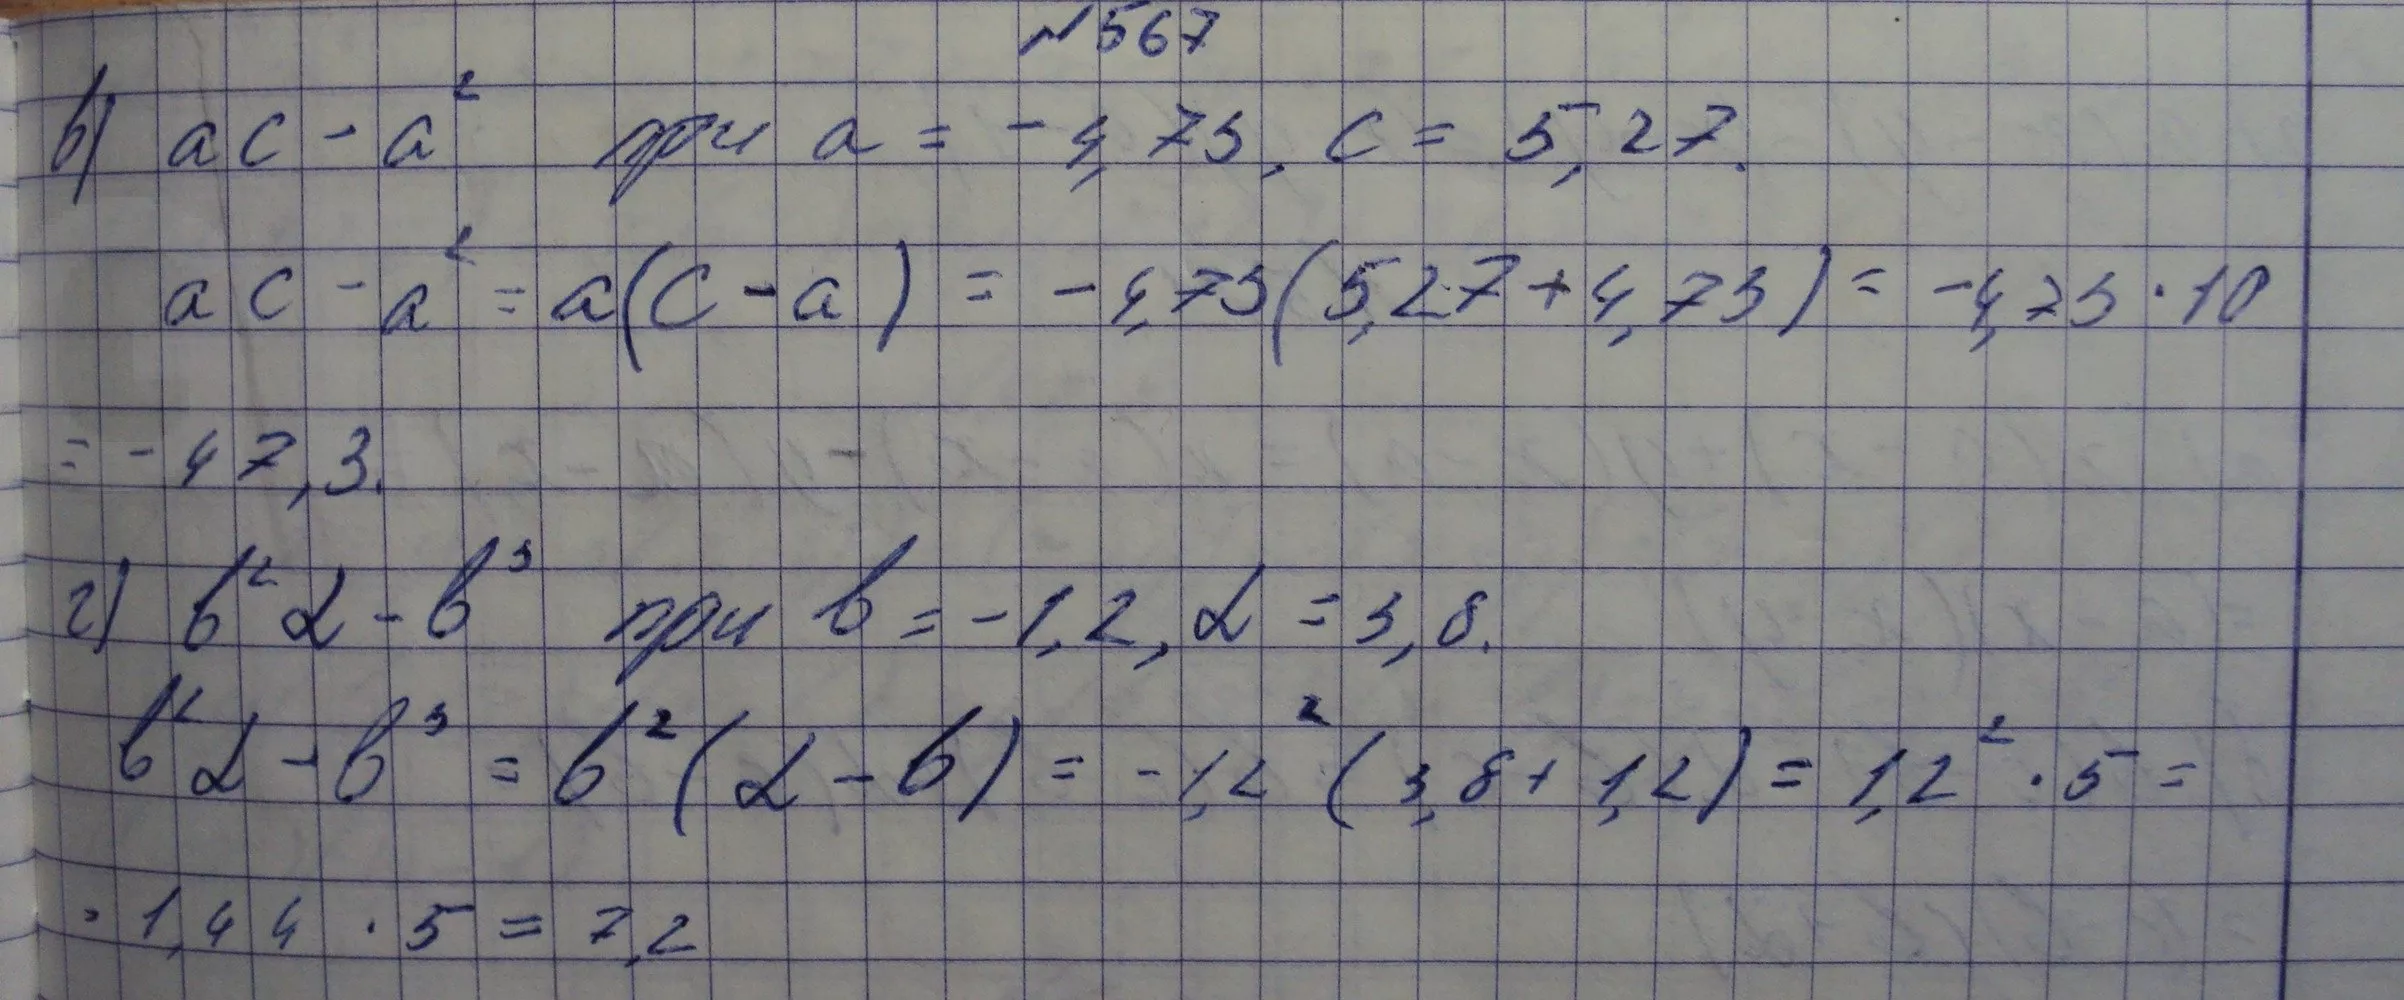 №567
в) ac - a² при a = -4,73, c = 5,27.
ac - a² = a(c - a) = -4,73(5,27 + 4,73) = -4,73 · 10
= -47,3.
г) b²d - b³ при b = -1,2, d = 3,8.
b²d - b³ = b²(d - b) = -1,2² (3,8 + 1,2) = 1,2² · 5 =
= 1,44 · 5 = 7,2